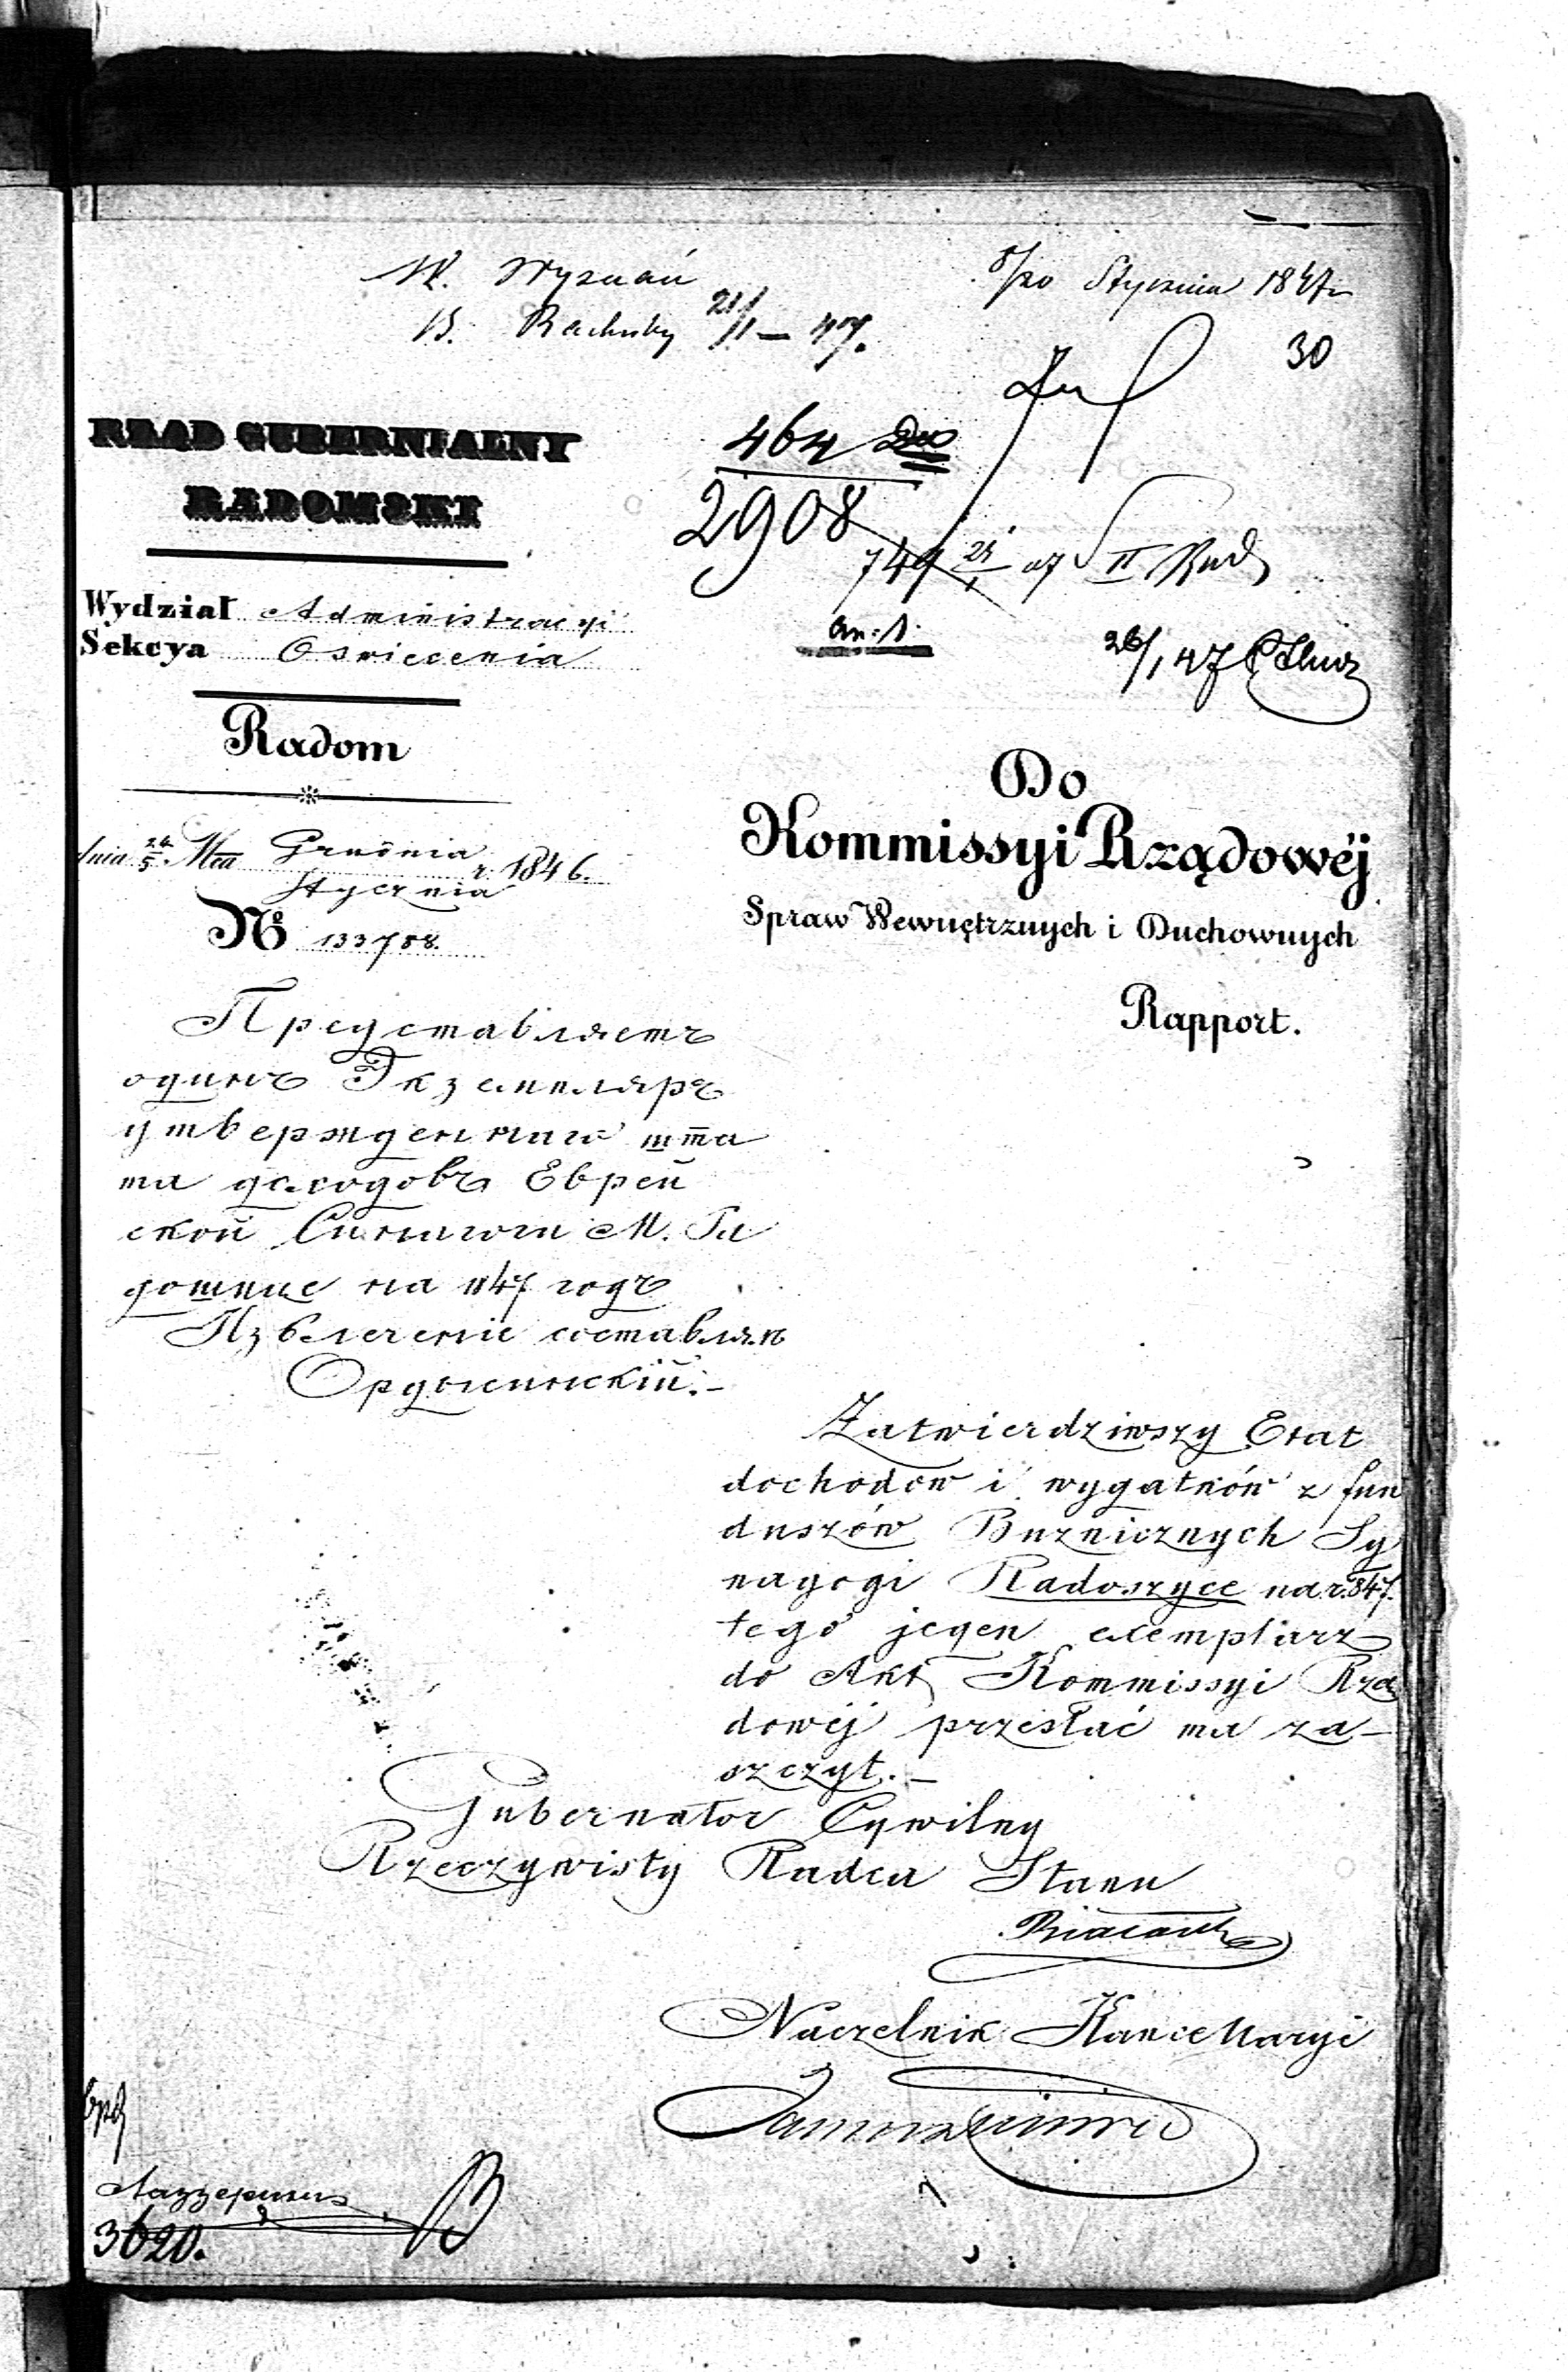 W. Wyznań
B. Rachuby 21/1 — 47.
8/20 Stycznia 1847
30
RZĄD GUBERNIALNY
RADOMSKI
464
2908
749 II
an: 1.
26/1 47
Wydział Administracyi
Sekcya Oswiecenia
Radom
dnia 24/5 Mca Grudnia
Stycznia r. 1846.
№ 133788.
Do
Kommissyi Rządowéj
Spraw Wewnętrznych i Duchownych
Rapport.
Представляетъ
одинъ Экземпляръ
утвержденнаго шта
та доходовъ Еврей
ской Синагоги М. Ра
дошице на 1847 годъ
Извлеченіе составлялъ
Zatwierdziwszy Etat
dochodów i wydatków z fun
duszów Bużnicznych Sy
nagogi Radoszyce na r. 847.
tego jeden exemplarz
do Akt Kommissyi Rzą
dowéj przesłać ma za-
szczyt. —
Gubernator Cywilny
Rzeczywisty Radca Stanu
Naczelnik Kancellaryi
3620.